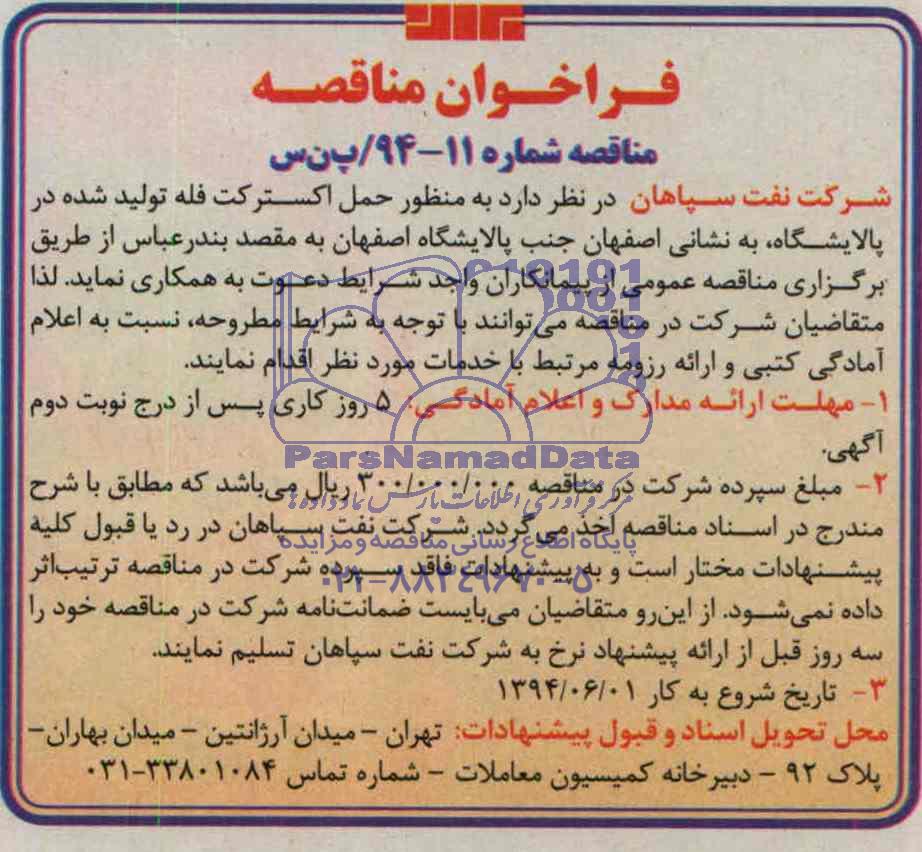 فراخوان مناقصه
مناقصه شماره ۱۱-۹۴/پ‌ن‌س
شرکت نفت سپاهان در نظر دارد به منظور حمل اکسترکت فله تولید شده در
پالایشگاه، به نشانی اصفهان جنب پالایشگاه اصفهان به مقصد بندرعباس از طریق
برگزاری مناقصه عمومی از پیمانکاران واجد شرایط دعوت به همکاری نماید. لذا
متقاضیان شرکت در مناقصه می‌توانند با توجه به شرایط مطروحه، نسبت به اعلام
آمادگی کتبی و ارائه رزومه مرتبط با خدمات مورد نظر اقدام نمایند.
۱- مهلت ارائه مدارک و اعلام آمادگی: ۵ روز کاری پس از درج نوبت دوم
آگهی.
ParsNamadData
۲- مبلغ سپرده شرکت در مناقصه ۳۰۰/۰۰۰/۰۰۰ ریال می‌باشد که مطابق با شرح
مرکز فرآوری اطلاعات پارس نماد داده ها
مندرج در اسناد مناقصه اخذ می‌گردد. شرکت نفت سپاهان در رد یا قبول کلیهٔ
پایگاه اطلاع رسانی مناقصه و مزایده
پیشنهادات مختار است و به پیشنهادات فاقد سپرده شرکت در مناقصه ترتیب‌اثر
۰۲۱-۸۸۳۴۹۶۷۰-۵
داده نمی‌شود. از این‌رو متقاضیان می‌بایست ضمانت‌نامه شرکت در مناقصه خود را
سه روز قبل از ارائه پیشنهاد نرخ به شرکت نفت سپاهان تسلیم نمایند.
۳- تاریخ شروع به کار ۱۳۹۴/۰۶/۰۱
محل تحویل اسناد و قبول پیشنهادات: تهران - میدان آرژانتین - میدان بهاران-
پلاک ۹۲ - دبیرخانه کمیسیون معاملات - شماره تماس ۳۳۸۰۱۰۸۴-۰۳۱